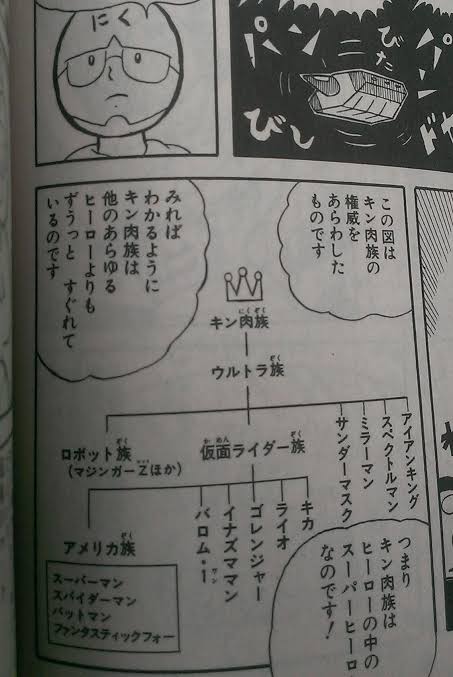 パンパン
びたびし
にく
この図は
キン肉族の
権威を
あらわした
ものです
みれば
わかるように
キン肉族は
他のあらゆる
ヒーローよりも
ずうっと すぐれて
いるのです
キン肉族
ウルトラ族
アイアンキング
スペクトルマン
ミラーマン
サンダーマスク
仮面ライダー族
ロボット族
(マジンガーZほか)
キカ
ライオ
ゴレンジャー
イナズマン
バロム・1
アメリカ族
スーパーマン
スパイダーマン
バットマン
ファンタスティックフォー
つまり
キン肉族は
ヒーローの中の
スーパーヒーロ
なのです!